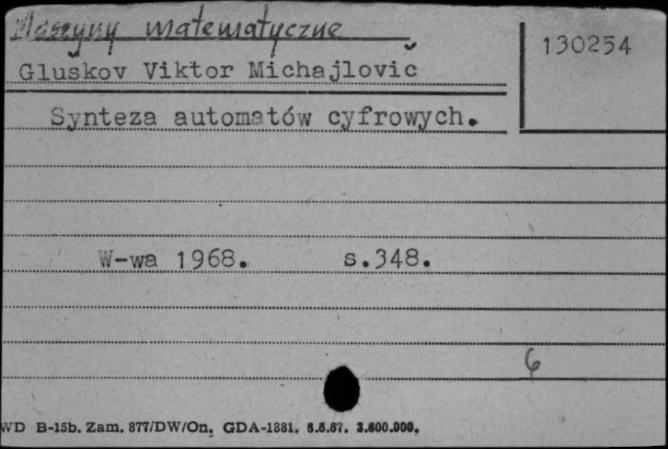 Maszyny matematyczne
130254
Gluškov Viktor Michajlovič
Synteza automatów cyfrowych.
W-wa 1968. s.348.
6
WD B-15b. Zam. 877/DW/On. GDA-1881. 6.6.67. 3.600.000.